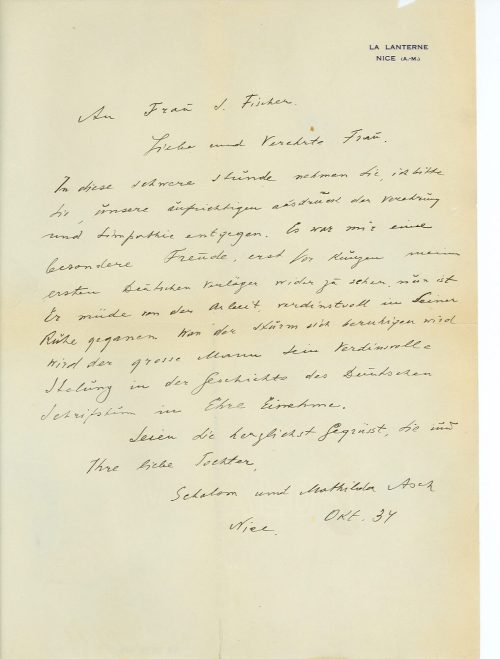 LA LANTERNE
NICE (A.-M.)
An Frau S. Fischer.
Liebe und Verehrte Frau.
In diese schwere stunde nehmen Sie, ich bitte
Sie, unsere aufrichtigen ausdruck der Verehrung
und Simpathie entgegen. Es war mir eine
besondere Freude, erst vor kurzen meinen
ersten Deutschen Verläger wider zu sehen. nun ist
Er müde von der Arbeit, verdinstvoll in Seiner
Rühe geganen. Wan der stürm sich beruhigen wird
wird der grosse Mann sein Verdinsvolle
Stelung in der Geschichte des Deutschen
Schrifstum in Ehre Einehme.
Seien Sie herzlichst Gegrüsst, Sie und
Ihre liebe Tochter,
Schalom und Mathilda Asch
Nice. Okt. 34